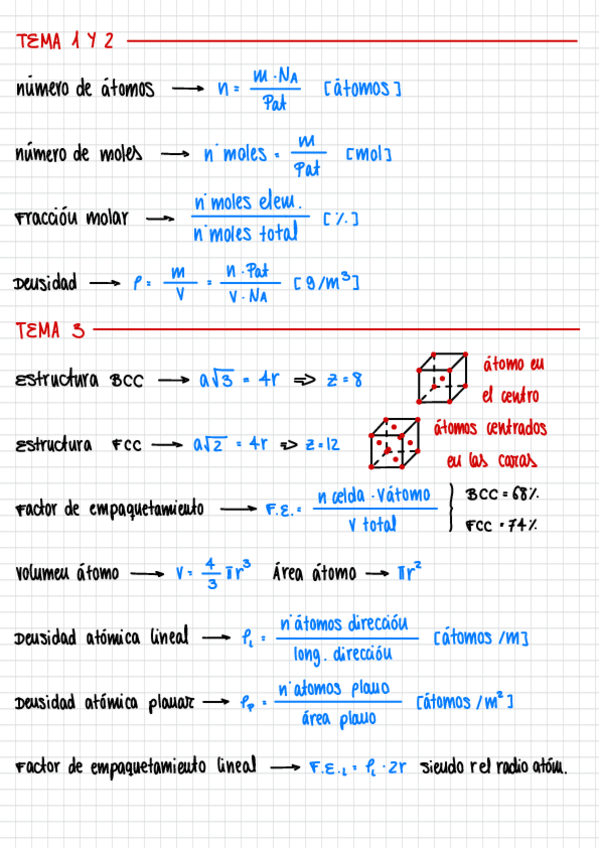 TEMA 1 Y 2
número de átomos → n = m · NA / Pat [átomos]
número de moles → nº moles = m / Pat [mol]
Fracción molar → nº moles elem. / nº moles total [%]
Densidad → ρ = m / V = n · Pat / V · NA [g/m³]
TEMA 3
Estructura BCC → a√3 = 4r => z = 8 átomo en el centro
Estructura FCC → a√2 = 4r => z = 12 átomos centrados en las caras
Factor de empaquetamiento → F.E. = n celda · Vátomo / V total } BCC = 68% FCC = 74%
Volumen átomo → V = 4/3 πr³ Área átomo → πr²
Densidad atómica lineal → ρL = nº átomos dirección / long. dirección [átomos/m]
Densidad atómica planar → ρp = nº atomos plano / área plano [átomos/m²]
Factor de empaquetamiento lineal → F.E.L = ρL · 2r siendo r el radio atóm.